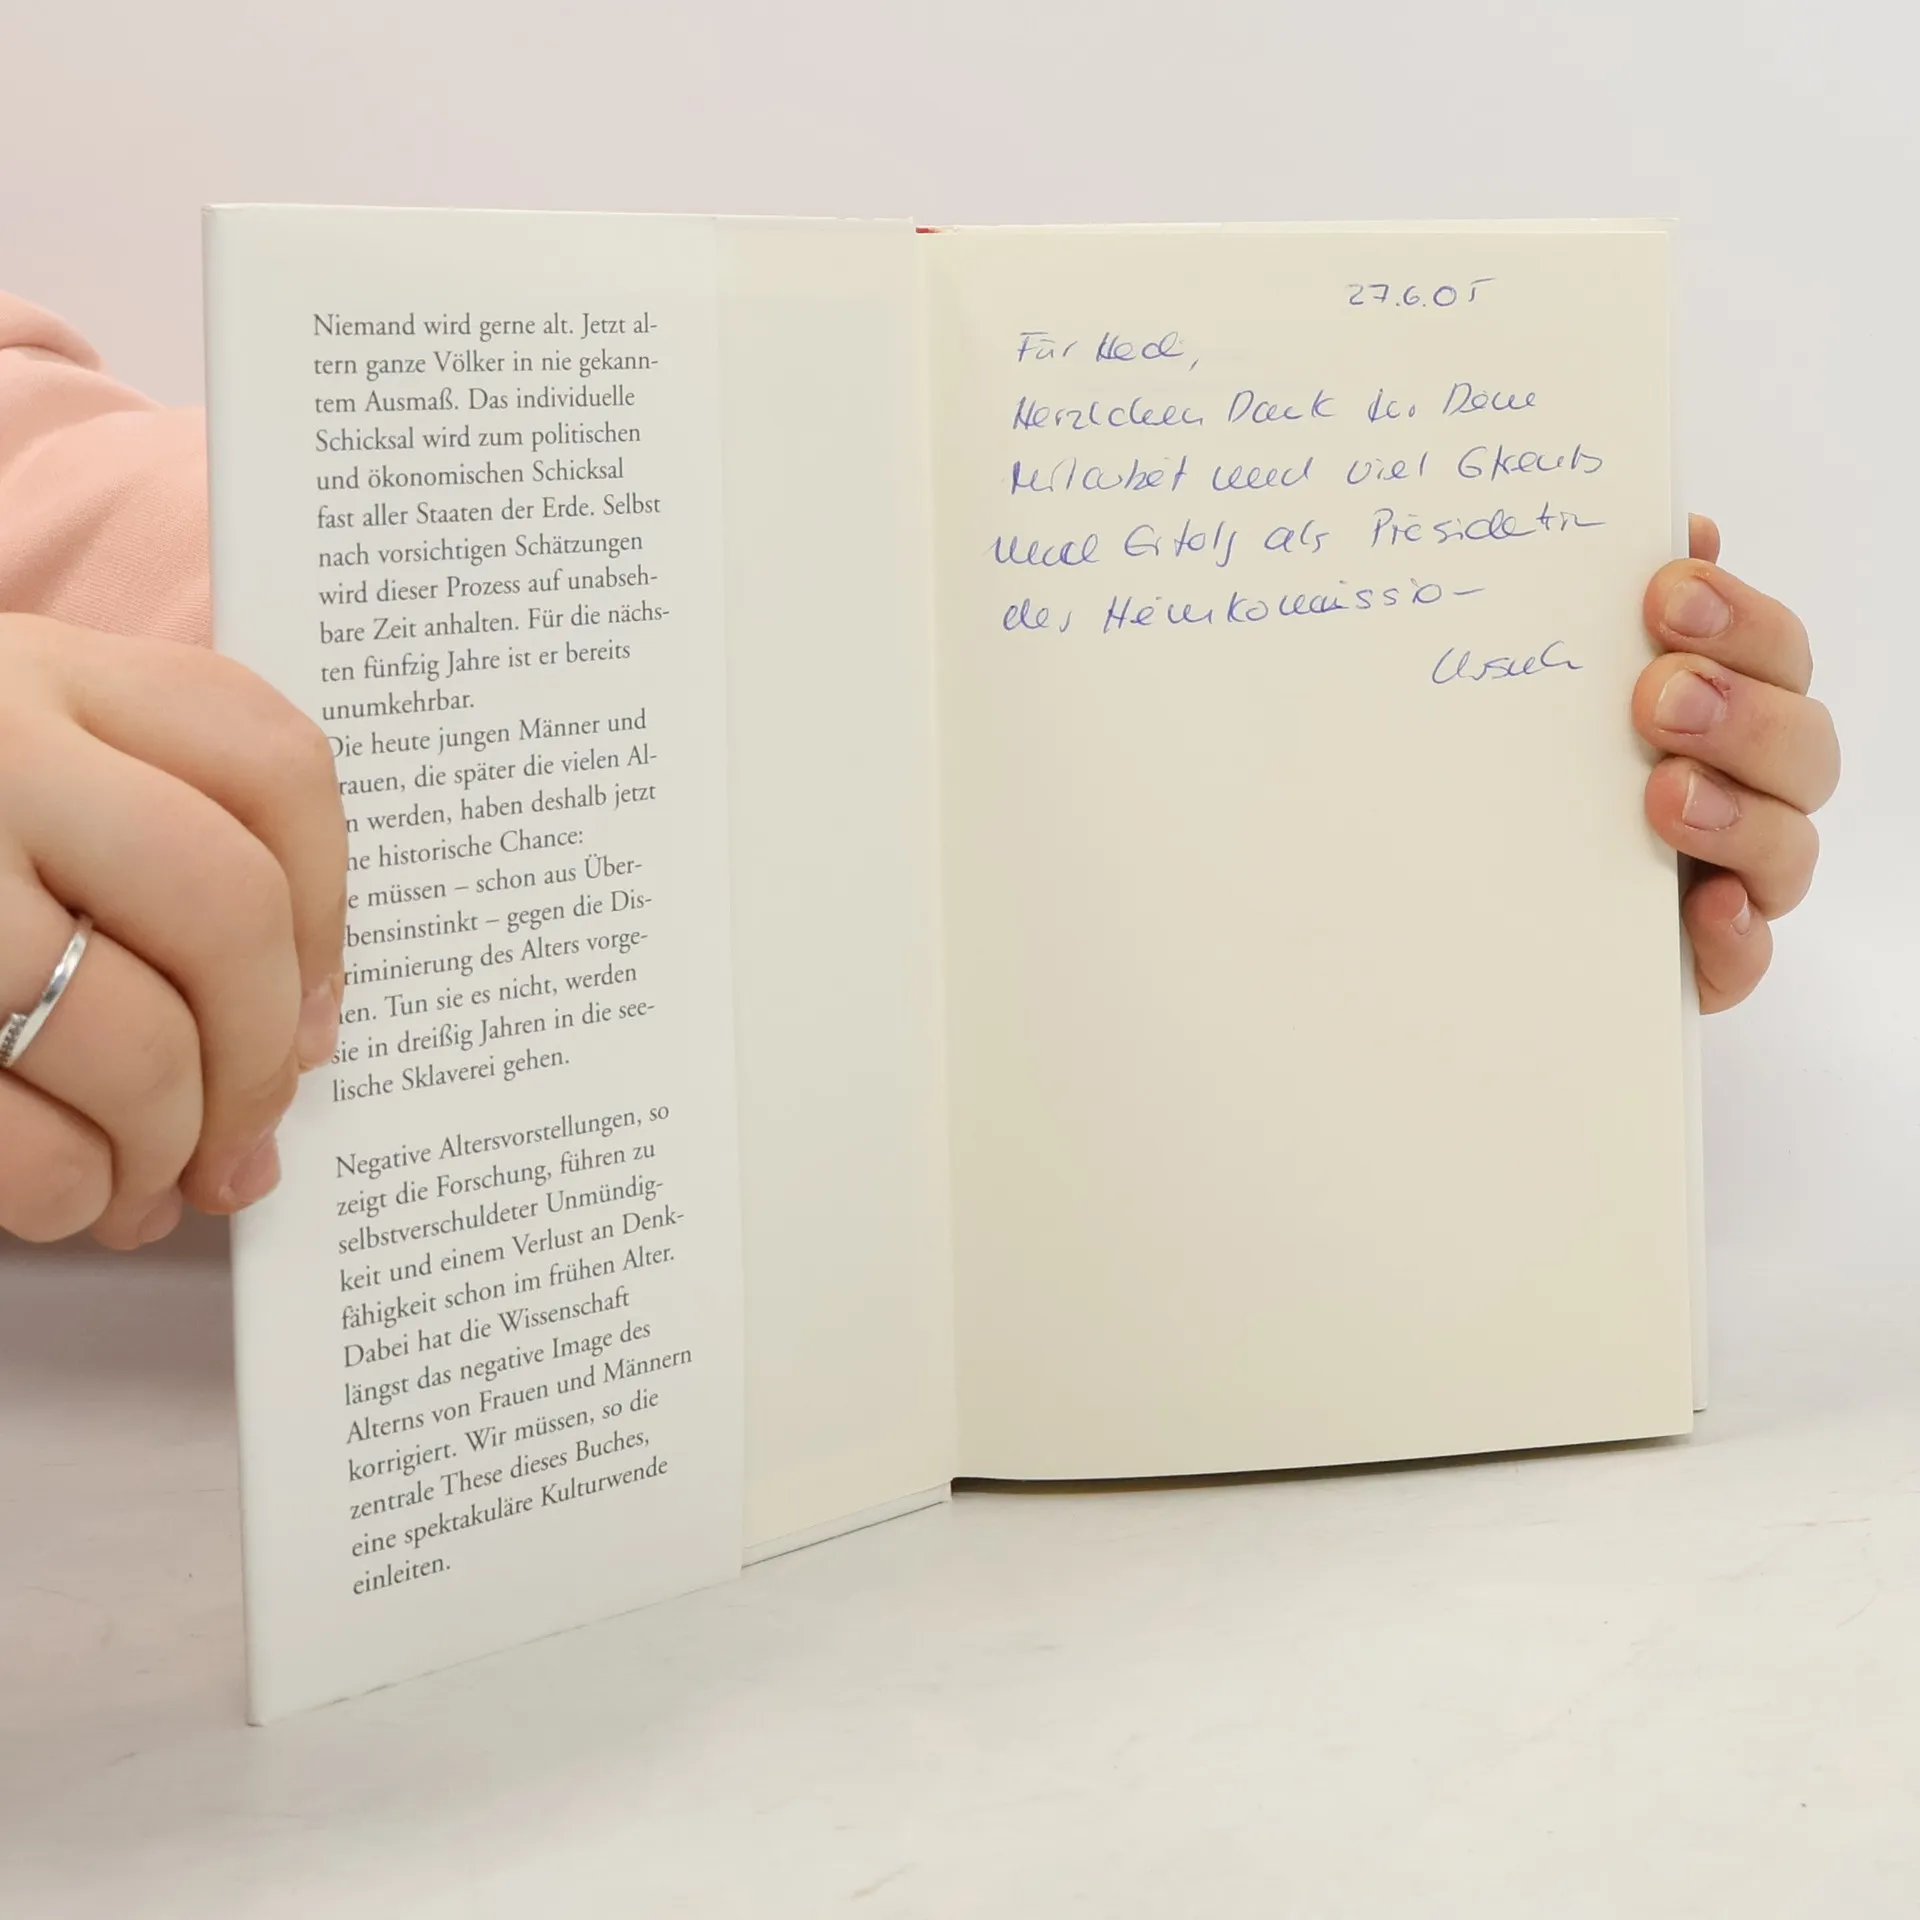 Niemand wird gerne alt. Jetzt al-
tern ganze Völker in nie gekann-
tem Ausmaß. Das individuelle
Schicksal wird zum politischen
und ökonomischen Schicksal
fast aller Staaten der Erde. Selbst
nach vorsichtigen Schätzungen
wird dieser Prozess auf unabseh-
bare Zeit anhalten. Für die nächs-
ten fünfzig Jahre ist er bereits
unumkehrbar.
Die heute jungen Männer und
rauen, die später die vielen Al-
n werden, haben deshalb jetzt
ne historische Chance:
e müssen – schon aus Über-
bensinstinkt – gegen die Dis-
riminierung des Alters vorge-
en. Tun sie es nicht, werden
sie in dreißig Jahren in die see-
lische Sklaverei gehen.
Negative Altersvorstellungen, so
zeigt die Forschung, führen zu
selbstverschuldeter Unmündig-
keit und einem Verlust an Denk-
fähigkeit schon im frühen Alter.
Dabei hat die Wissenschaft
längst das negative Image des
Alterns von Frauen und Männern
korrigiert. Wir müssen, so die
zentrale These dieses Buches,
eine spektakuläre Kulturwende
einleiten.
27.6.05
Für
Herzlichen Dank für Deine
Mitarbeit und viel
und Erfolg als Präsidentin
der Heimkommission